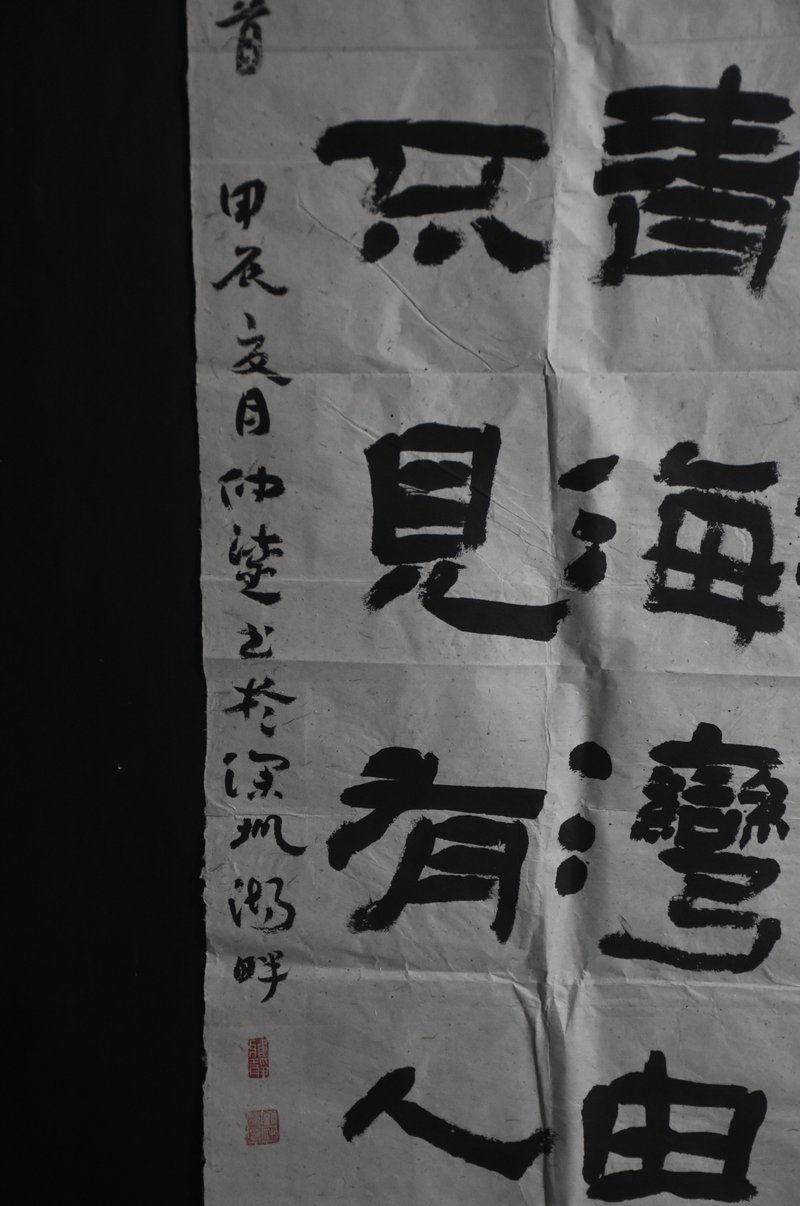 青海灣由
不見有人
首 甲辰夏月仲書於深圳湖畔